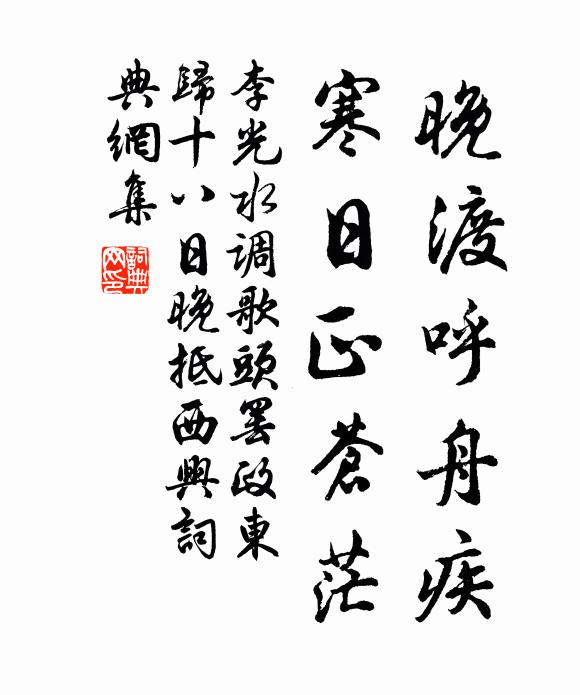 晚渡呼舟疾
寒日正蒼茫
李光水調歌頭罷政東
歸十八日晚抵西興詞
典網集
詞典網印